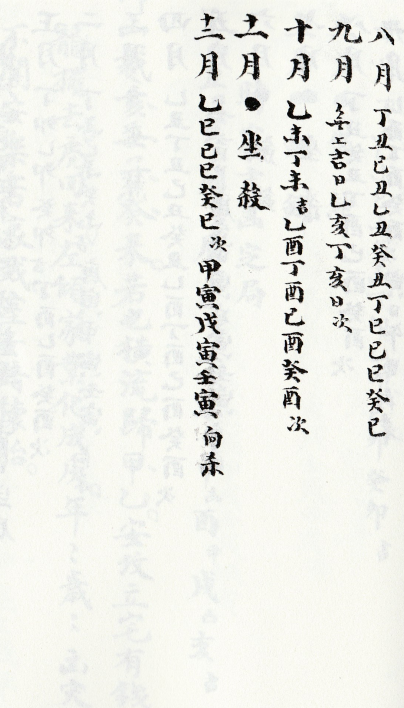 八月 丁丑己丑乙丑癸丑丁巳己巳癸巳
九月 無上吉日乙亥丁亥日次
十月 乙未丁未吉乙酉丁酉己酉癸酉次
十一月●坐殺
十二月 乙巳己巳癸巳次甲寅戊寅壬寅向杀